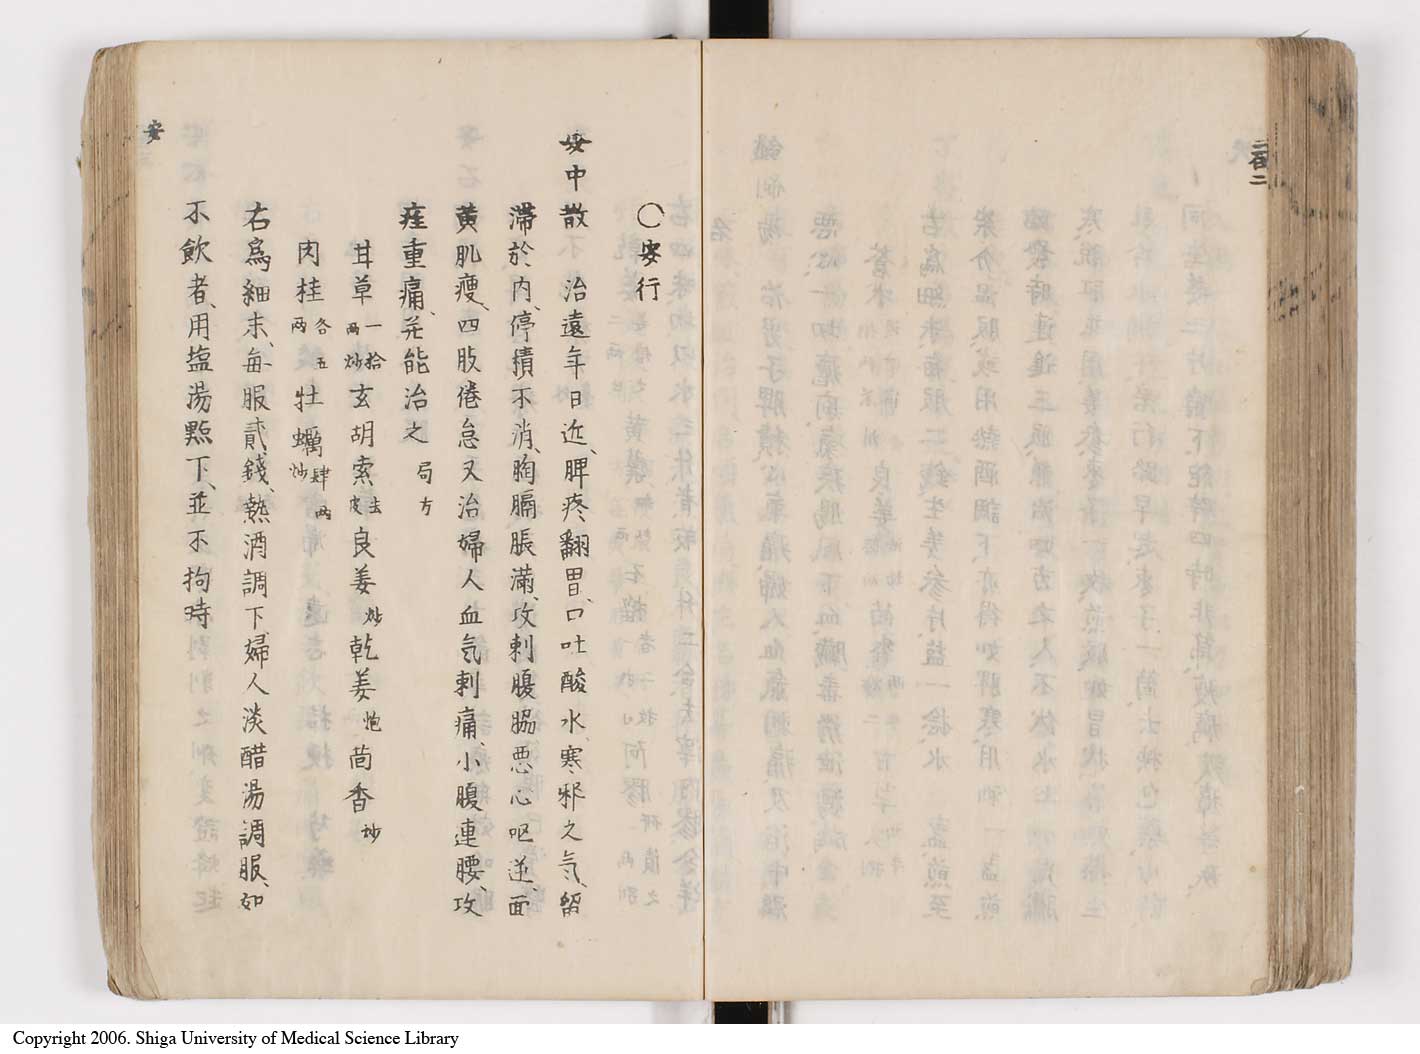 二百二
○安行
安中散 治遠年日近、脾疼翻胃、口吐酸水、寒邪之気、留
滞於内、停積不消、胸膈脹滿、攻刺腹脇、悪心呕逆、面
黄肌瘦、四肢倦怠、又治婦人血気刺痛、小腹連腰、攻
疰重痛、並能治之 局方
甘草一拾両炒 玄胡索去皮 良姜炒 乾姜炮 茴香炒
肉桂各五両 牡蠣肆両炒
右為細末、毎服貳錢、熱酒調下、婦人淡醋湯調服、如
不飲者、用塩湯㸃下、並不拘時
安
Copyright 2006. Shiga University of Medical Science Library